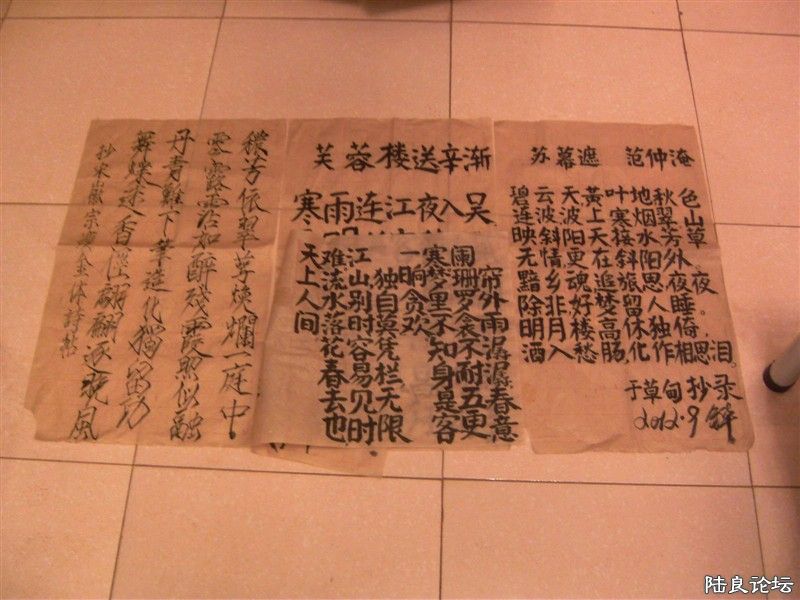 苏幕遮 范仲淹
碧云天黃叶地秋色
连波波上寒烟翠山
映斜阳天接水芳草
无情更在斜阳外
黯乡魂追旅思,夜夜
除非好梦留人睡。
明月楼高休独倚。
酒入愁肠,化作相思泪。
于草甸抄录
2012.9
芙蓉楼送辛渐
寒雨连江夜入吴
帘外雨潺潺春意
阑珊罗衾不耐五更
寒梦里不知身是客
一晌贪欢
独自莫凭栏无限
江山别时容易见时
难流水落花春去也
天上人间
穠芳依翠萼煥爛一庭中
零露霑如醉殘霞照似融
丹青難下筆造化獨留功
舞蝶迷香徑翩翩逐晚風
抄宋徽宗瘦金体詩帖
陆良论坛